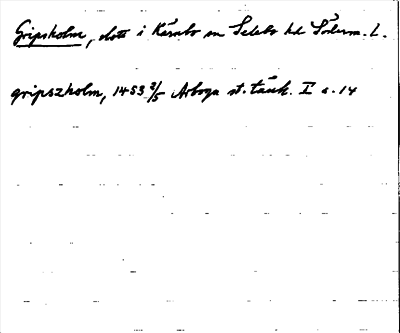 Gripsholm, slott i Kärnbo sn Selebo hd Söderm. L.
gripszholm, 1453 2/5 Arboga st. tänk. I s. 14